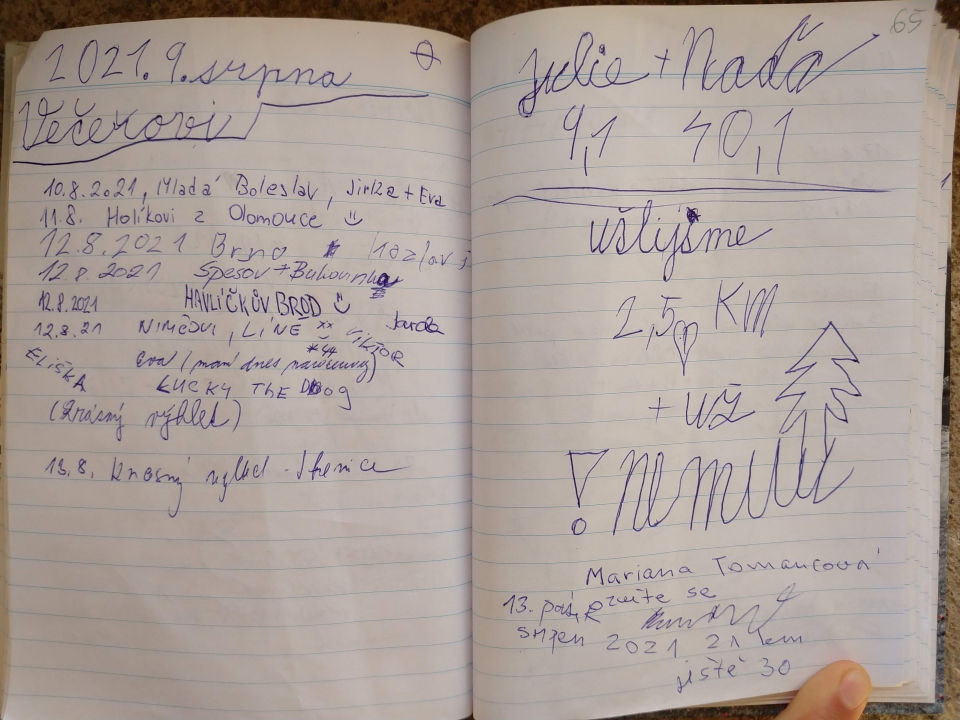 2021. 9. srpna
Večerovi
10.8.2021, Mladá Boleslav, Jirka + Eva
11.8. Holíkovi z Olomouce
12.8.2021 Brno
12.8.2021 Spešov + Bukovinka
12.8.2021 HAVLÍČKŮV BROD
12.8.21 LÍNĚ
VIKTOR
ELIŠKA
Eva (mám dnes narozeniny)
LUCKY THE DOG
(Krásný výhled)
13.8. Krásný
65
Julie + Naďa
9,1 40,1
ušlijsme
2,5 KM
+ už
! nemůžu
Mariana Tomancová
13.
srpen 2021 21 km
ještě 30